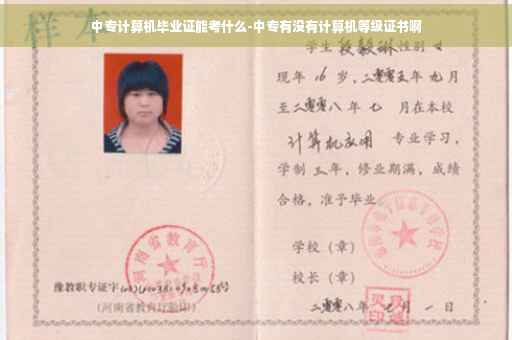 中专计算机毕业证能考什么-中专有没有计算机等级证书啊
样本
学生段毅琳性别女
现年16岁，二零零五年九月
至二零零八年七月在本校
计算机应用专业学习，
学制三年，修业期满，成绩
合格，准予毕业
学校（章）
校长（章）
二零零八年七月一日
河南省教育厅
豫教职专证字
（河南省教育厅验印）